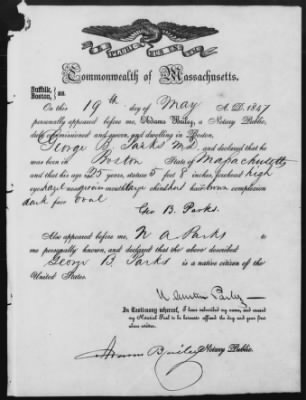 Commonwealth of Massachusetts.
Suffolk,
Boston, ss.
On this 19th day of May A. D. 1847
personally appeared before me, Adams Bailey, a Notary Public,
duly commissioned and sworn, and dwelling in Boston,
George B. Parks M.d. and declared that he
was born in Boston State of Massachusetts
and that his age 25 years, stature 5 feet 8 inches, forehead high
eyes hazel nose mouth large chin short hair brown complexion
dark face oval
Geo B. Parks.
Also appeared before me, N A Parks to
me personally known, and declared that the above described
George B Parks is a native citizen of the
United States.
In Testimony whereof, I have subscribed my name, and caused
my Notarial Seal to be hereunto affixed the day and year first
above written.
Adams Bailey Notary Public.